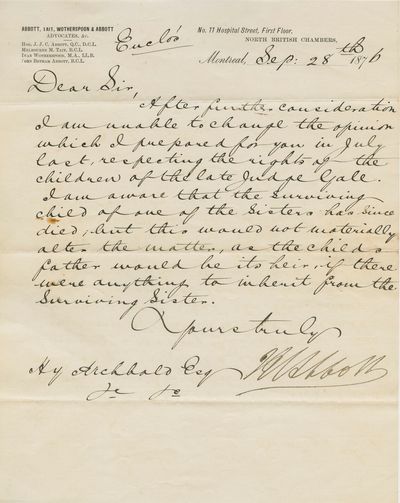 ABBOTT, TAIT, WOTHERSPOON & ABBOTT
ADVOCATES, &c.
Hon. J. J. C. Abbott, Q.C., D.C.L.
Melbourne M. Tait, B.C.L.
Ivan Wotherspoon, M.A., LL.B.
John Bethune Abbott, B.C.L.
Enclós
No. 11 Hospital Street, First Floor,
NORTH BRITISH CHAMBERS,
Montreal, Sep: 28th 1876
Dear Sir,
After further consideration
I am unable to change the opinion
which I prepared for you in July
last, respecting the rights of the
children of the late Judge Gale.
I am aware that the surviving
child of one of the sisters has since
died, but this would not materially
alter the matter, as the child's
father would be its heir, if there
were anything to inherit from the
surviving sister.
Yours truly
Hy Archbald Esq
&c &c
JJC Abbott